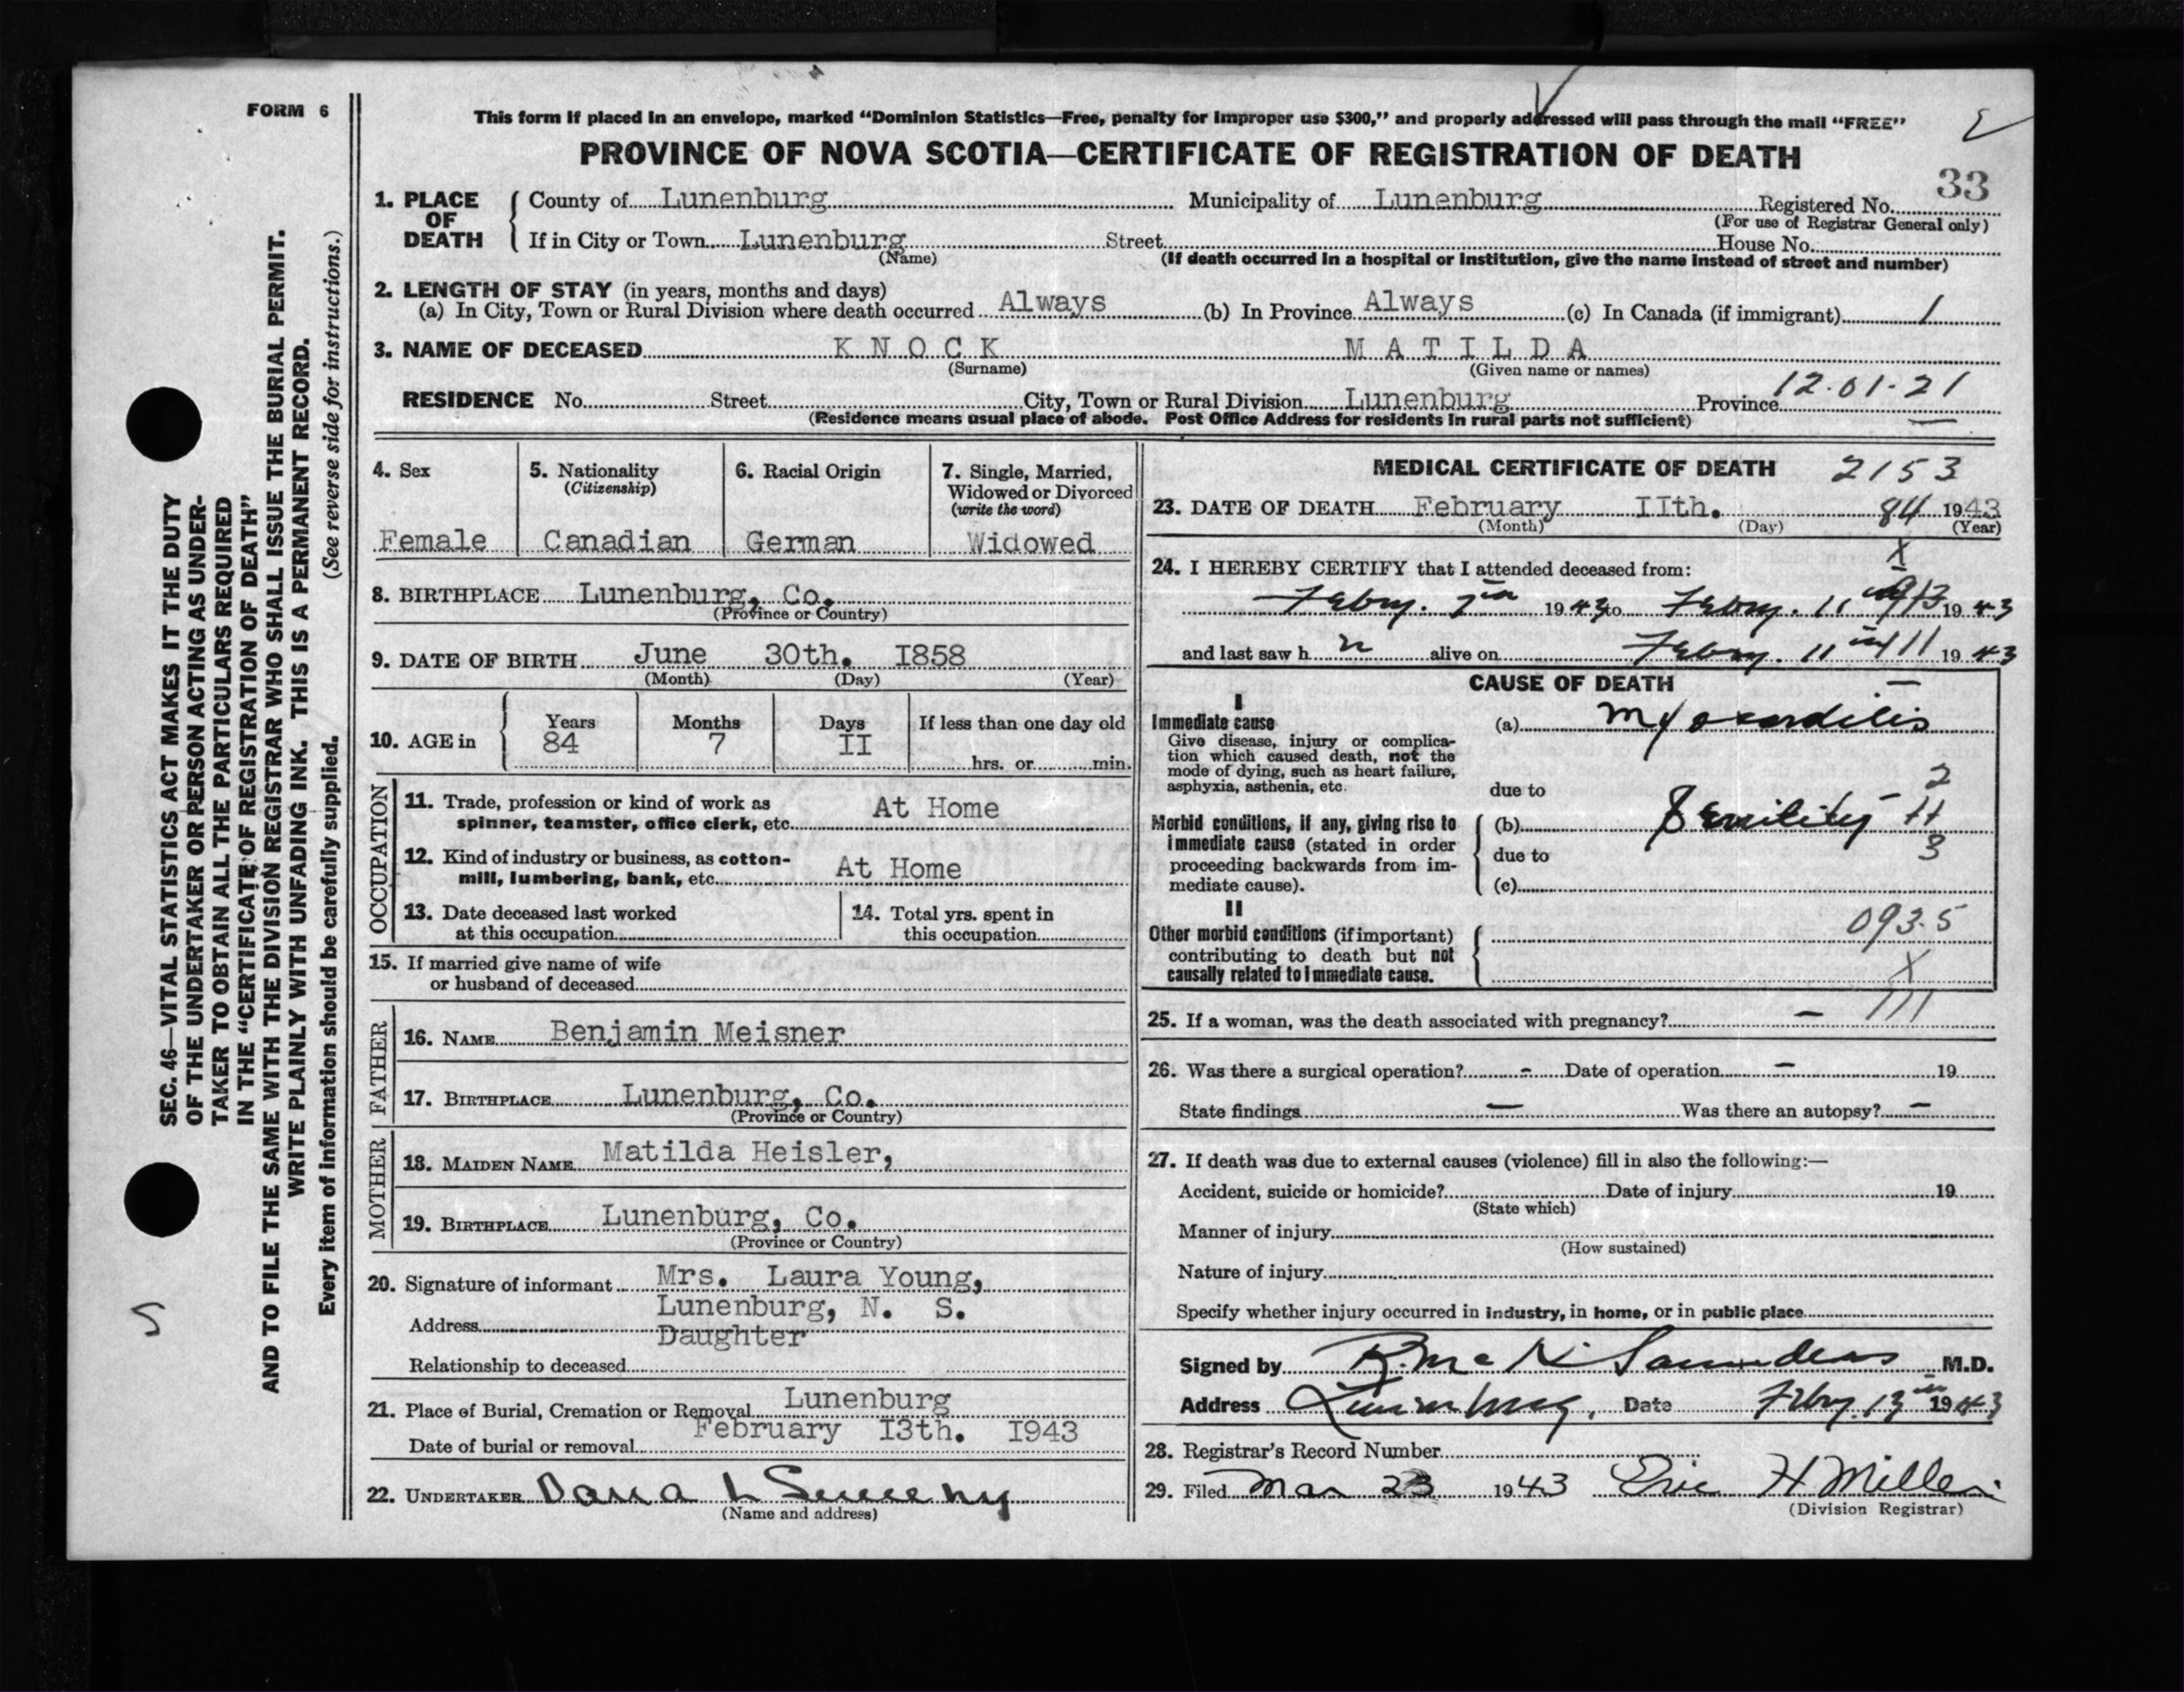 FORM 6
This form if placed in an envelope, marked "Dominion Statistics—Free, penalty for improper use $300," and properly addressed will pass through the mail "FREE"
PROVINCE OF NOVA SCOTIA—CERTIFICATE OF REGISTRATION OF DEATH
33
1. PLACE OF DEATH
County of Lunenburg Municipality of Lunenburg Registered No.
(For use of Registrar General only)
If in City or Town Lunenburg Street House No.
(Name) (If death occurred in a hospital or institution, give the name instead of street and number)
2. LENGTH OF STAY (in years, months and days)
(a) In City, Town or Rural Division where death occurred Always (b) In Province Always (c) In Canada (if immigrant) /
3. NAME OF DECEASED KNOCK MATILDA
(Surname) (Given name or names)
12-01-21
RESIDENCE No. Street City, Town or Rural Division Lunenburg Province
(Residence means usual place of abode. Post Office Address for residents in rural parts not sufficient)
4. Sex
Female
5. Nationality
(Citizenship)
Canadian
6. Racial Origin
German
7. Single, Married, Widowed or Divorced
(write the word)
Widowed
8. BIRTHPLACE Lunenburg, Co.
(Province or Country)
9. DATE OF BIRTH June 30th. I858
(Month) (Day) (Year)
10. AGE in
Years Months Days If less than one day old
84 7 II
hrs. or min.
OCCUPATION
11. Trade, profession or kind of work as At Home
spinner, teamster, office clerk, etc.
12. Kind of industry or business, as cotton- At Home
mill, lumbering, bank, etc.
13. Date deceased last worked
at this occupation
14. Total yrs. spent in
this occupation
15. If married give name of wife
or husband of deceased
FATHER
16. NAME Benjamin Meisner
17. BIRTHPLACE Lunenburg, Co.
(Province or Country)
MOTHER
18. MAIDEN NAME Matilda Heisler,
19. BIRTHPLACE Lunenburg, Co.
(Province or Country)
20. Signature of informant Mrs. Laura Young,
Lunenburg, N. S.
Address
Daughter
Relationship to deceased
21. Place of Burial, Cremation or Removal Lunenburg
Date of burial or removal February I3th. I943
22. UNDERTAKER
(Name and address)
MEDICAL CERTIFICATE OF DEATH 2153
23. DATE OF DEATH February IIth. 84 1943
(Month) (Day) (Year)
X
24. I HEREBY CERTIFY that I attended deceased from:
Febry. 7th 1943 to Febry. 11 1943
and last saw h alive on Febry. 11 1943
CAUSE OF DEATH
I
Immediate cause
Give disease, injury or complication which caused death, not the mode of dying, such as heart failure, asphyxia, asthenia, etc.
(a) Myocarditis
due to
2
Morbid conditions, if any, giving rise to immediate cause (stated in order proceeding backwards from immediate cause).
(b) Senility 11
due to 3
(c)
II
Other morbid conditions (if important) contributing to death but not causally related to immediate cause.
093.5
X
111
25. If a woman, was the death associated with pregnancy? —
26. Was there a surgical operation? - Date of operation — 19
State findings — Was there an autopsy? —
27. If death was due to external causes (violence) fill in also the following:—
Accident, suicide or homicide? Date of injury 19
(State which)
Manner of injury
(How sustained)
Nature of injury
Specify whether injury occurred in industry, in home, or in public place
Signed by R. Mc K Saunders M.D.
Address Lunenburg, Date Febry. 13th 1943
28. Registrar's Record Number
29. Filed Mar 23 1943 Eric H Miller
(Division Registrar)
SEC. 46—VITAL STATISTICS ACT MAKES IT THE DUTY
OF THE UNDERTAKER OR PERSON ACTING AS UNDER-
TAKER TO OBTAIN ALL THE PARTICULARS REQUIRED
IN THE "CERTIFICATE OF REGISTRATION OF DEATH"
AND TO FILE THE SAME WITH THE DIVISION REGISTRAR WHO SHALL ISSUE THE BURIAL PERMIT.
WRITE PLAINLY WITH UNFADING INK. THIS IS A PERMANENT RECORD.
Every item of information should be carefully supplied. (See reverse side for instructions.)